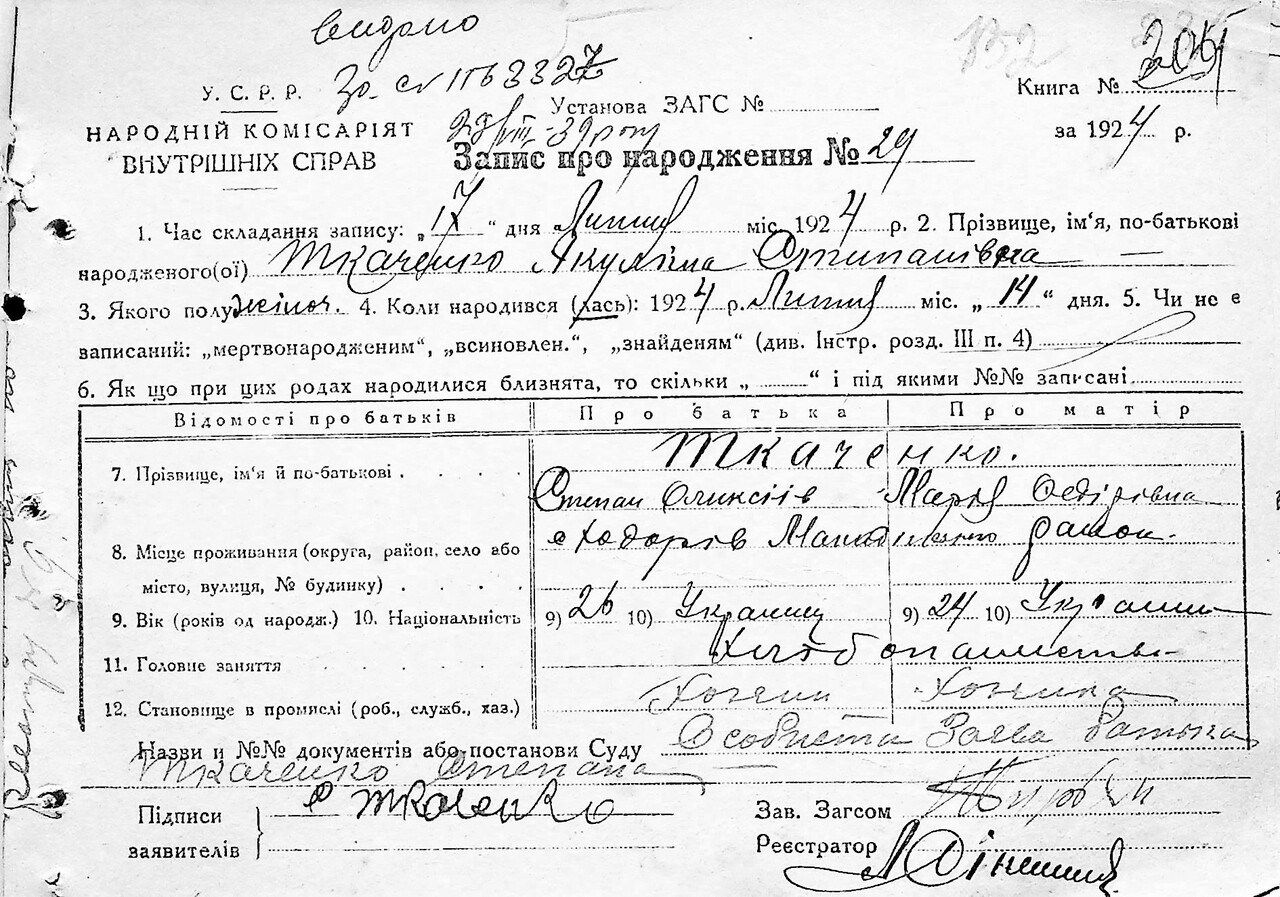 видано
У. С. Р. Р.
НАРОДНІЙ КОМІСАРІЯТ
ВНУТРІШНІХ СПРАВ
Установа ЗАГС №
Книга № 
за 1924 р.
Запис про народження № 29
1. Час складання запису: „17“ дня Липня міс. 1924 р. 2. Прізвище, ім'я, по-батькові
народженого(ої) Ткаченко Якуліна Степанівна —
3. Якого полу жіноч. 4. Коли народився (лась): 1924 р. Липня міс. „14“ дня. 5. Чи не є
записаний: „мертвонародженим“, „всиновлен.“, „знайденям“ (див. Інстр. розд. III п. 4)
6. Як що при цих родах народилися близнята, то скільки „ “ і під якими №№ записані
Відомості про батьків Про батька Про матір
7. Прізвище, ім'я й по-батькові . . . . Ткаченко.
Степан Оликсіів Марія Федірівна
8. Місце проживання (округа, район, село або
місто, вулиця, № будинку) . . . . с Ходорів район
9. Вік (років од народж.) 10. Національність 9) 26 10) Українц 9) 24 10) Україн
11. Головне заняття . . . .
12. Становище в промислі (роб., служб., хаз.) Хозяин Хозяйка
Назви и №№ документів або постанови Суду Особиста Заява батька
Ткаченко Степана
Підписи
заявителів
С Ткаченко
Зав. Загсом
Реєстратор